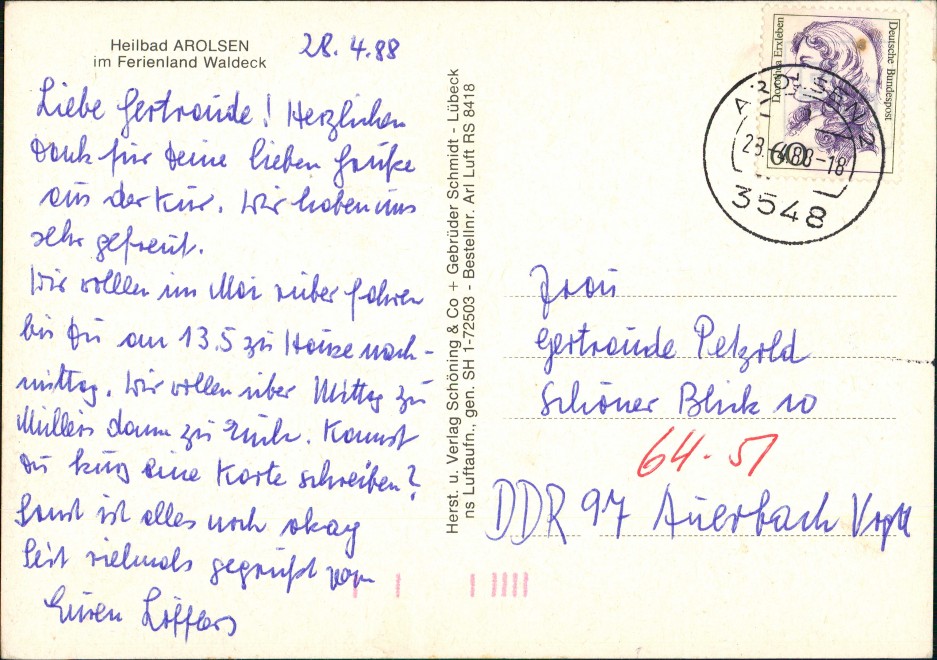 Heilbad AROLSEN
im Ferienland Waldeck
28.4.88
Liebe Gertraude! Herzlichen
Dank für Deine lieben Grüße
aus der Kur. Wir haben uns
sehr gefreut.
Wir wollen im Mai rüber fahren
bis Du am 13.5 zu Hause nach-
mittag. Wir wollen über Mittag zu
Müllers dann zu Euch. Kannst
Du kurz eine Karte schreiben?
Sonst ist alles noch okay
Seit vielmals gegrüßt von
Euren Löfflers
Herst. u. Verlag Schöning & Co + Gebrüder Schmidt - Lübeck
ns Luftaufn., gen. SH 1-72503 - Bestellnr. Arl Luft RS 8418
Dorothea Erxleben
Deutsche Bundespost
60
AROLSEN 2
28.-4.88-18
3548
Frau
Gertraude Petzold
Schöner Blick 10
64-51
DDR 97 Auerbach Vogtl